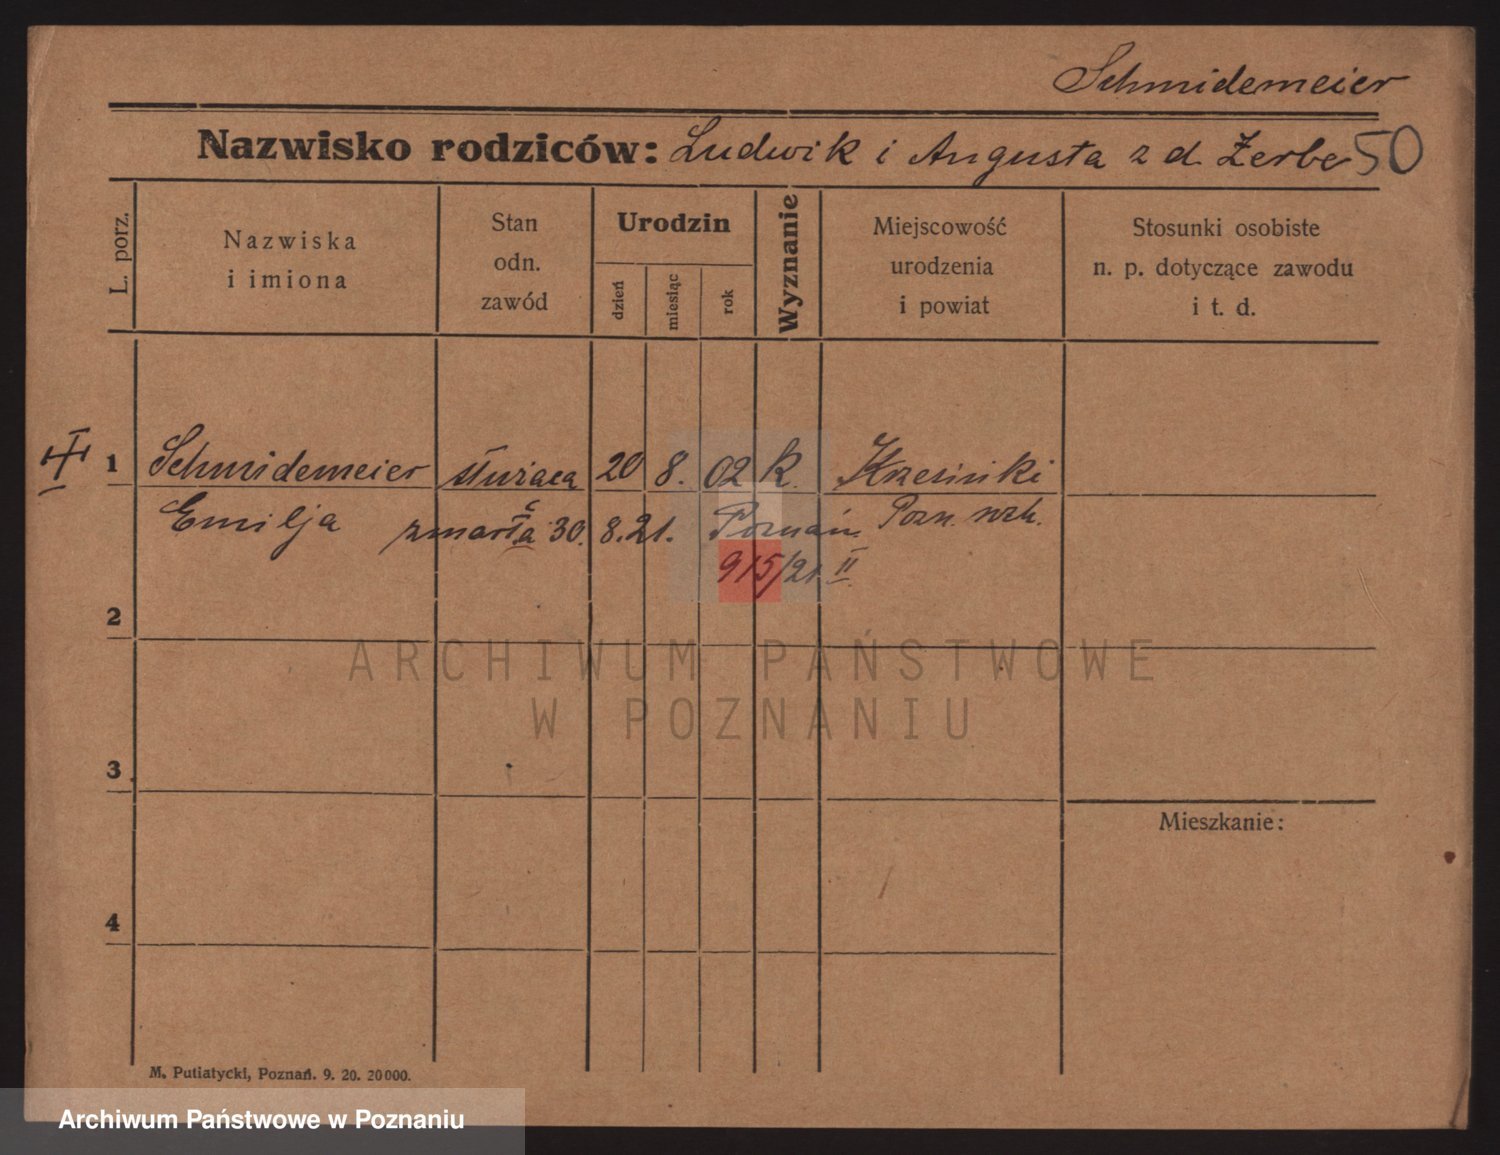 Schmidemeier
Nazwisko rodziców: Ludwik i Augusta z d. Zerbe 50
L. porz.
Nazwiska
i imiona
Stan
odn.
zawód
Urodzin
dzień
miesiąc
rok
Wyznanie
Miejscowość
urodzenia
i powiat
Stosunki osobiste
n. p. dotyczące zawodu
i t. d.
1 Schmidemeier służąca 20 8. 02 k. Krzesinki
Emilja zmarła 30. 8. 21. Poznań Pozn. wsch.
915/21 II
2
3
4
Mieszkanie:
M. Putiatycki, Poznań. 9. 20. 20000.
ARCHIWUM PAŃSTWOWE
W POZNANIU
Archiwum Państwowe w Poznaniu